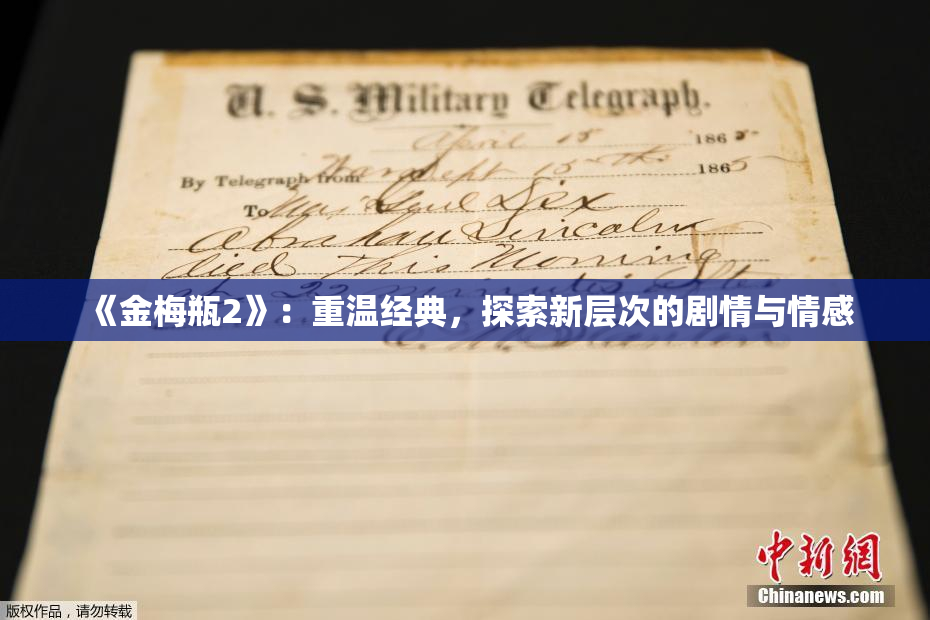 U. S. Military Telegraph.
April 15 1865
By Telegraph from War Dept 15th 1865
To Maj Genl Dix
Abraham Lincoln
died This Morning
at 22 minutes after
《金梅瓶2》：重温经典，探索新层次的剧情与情感
E. M. Stanton
中新网
Chinanews.com
版权作品，请勿转载